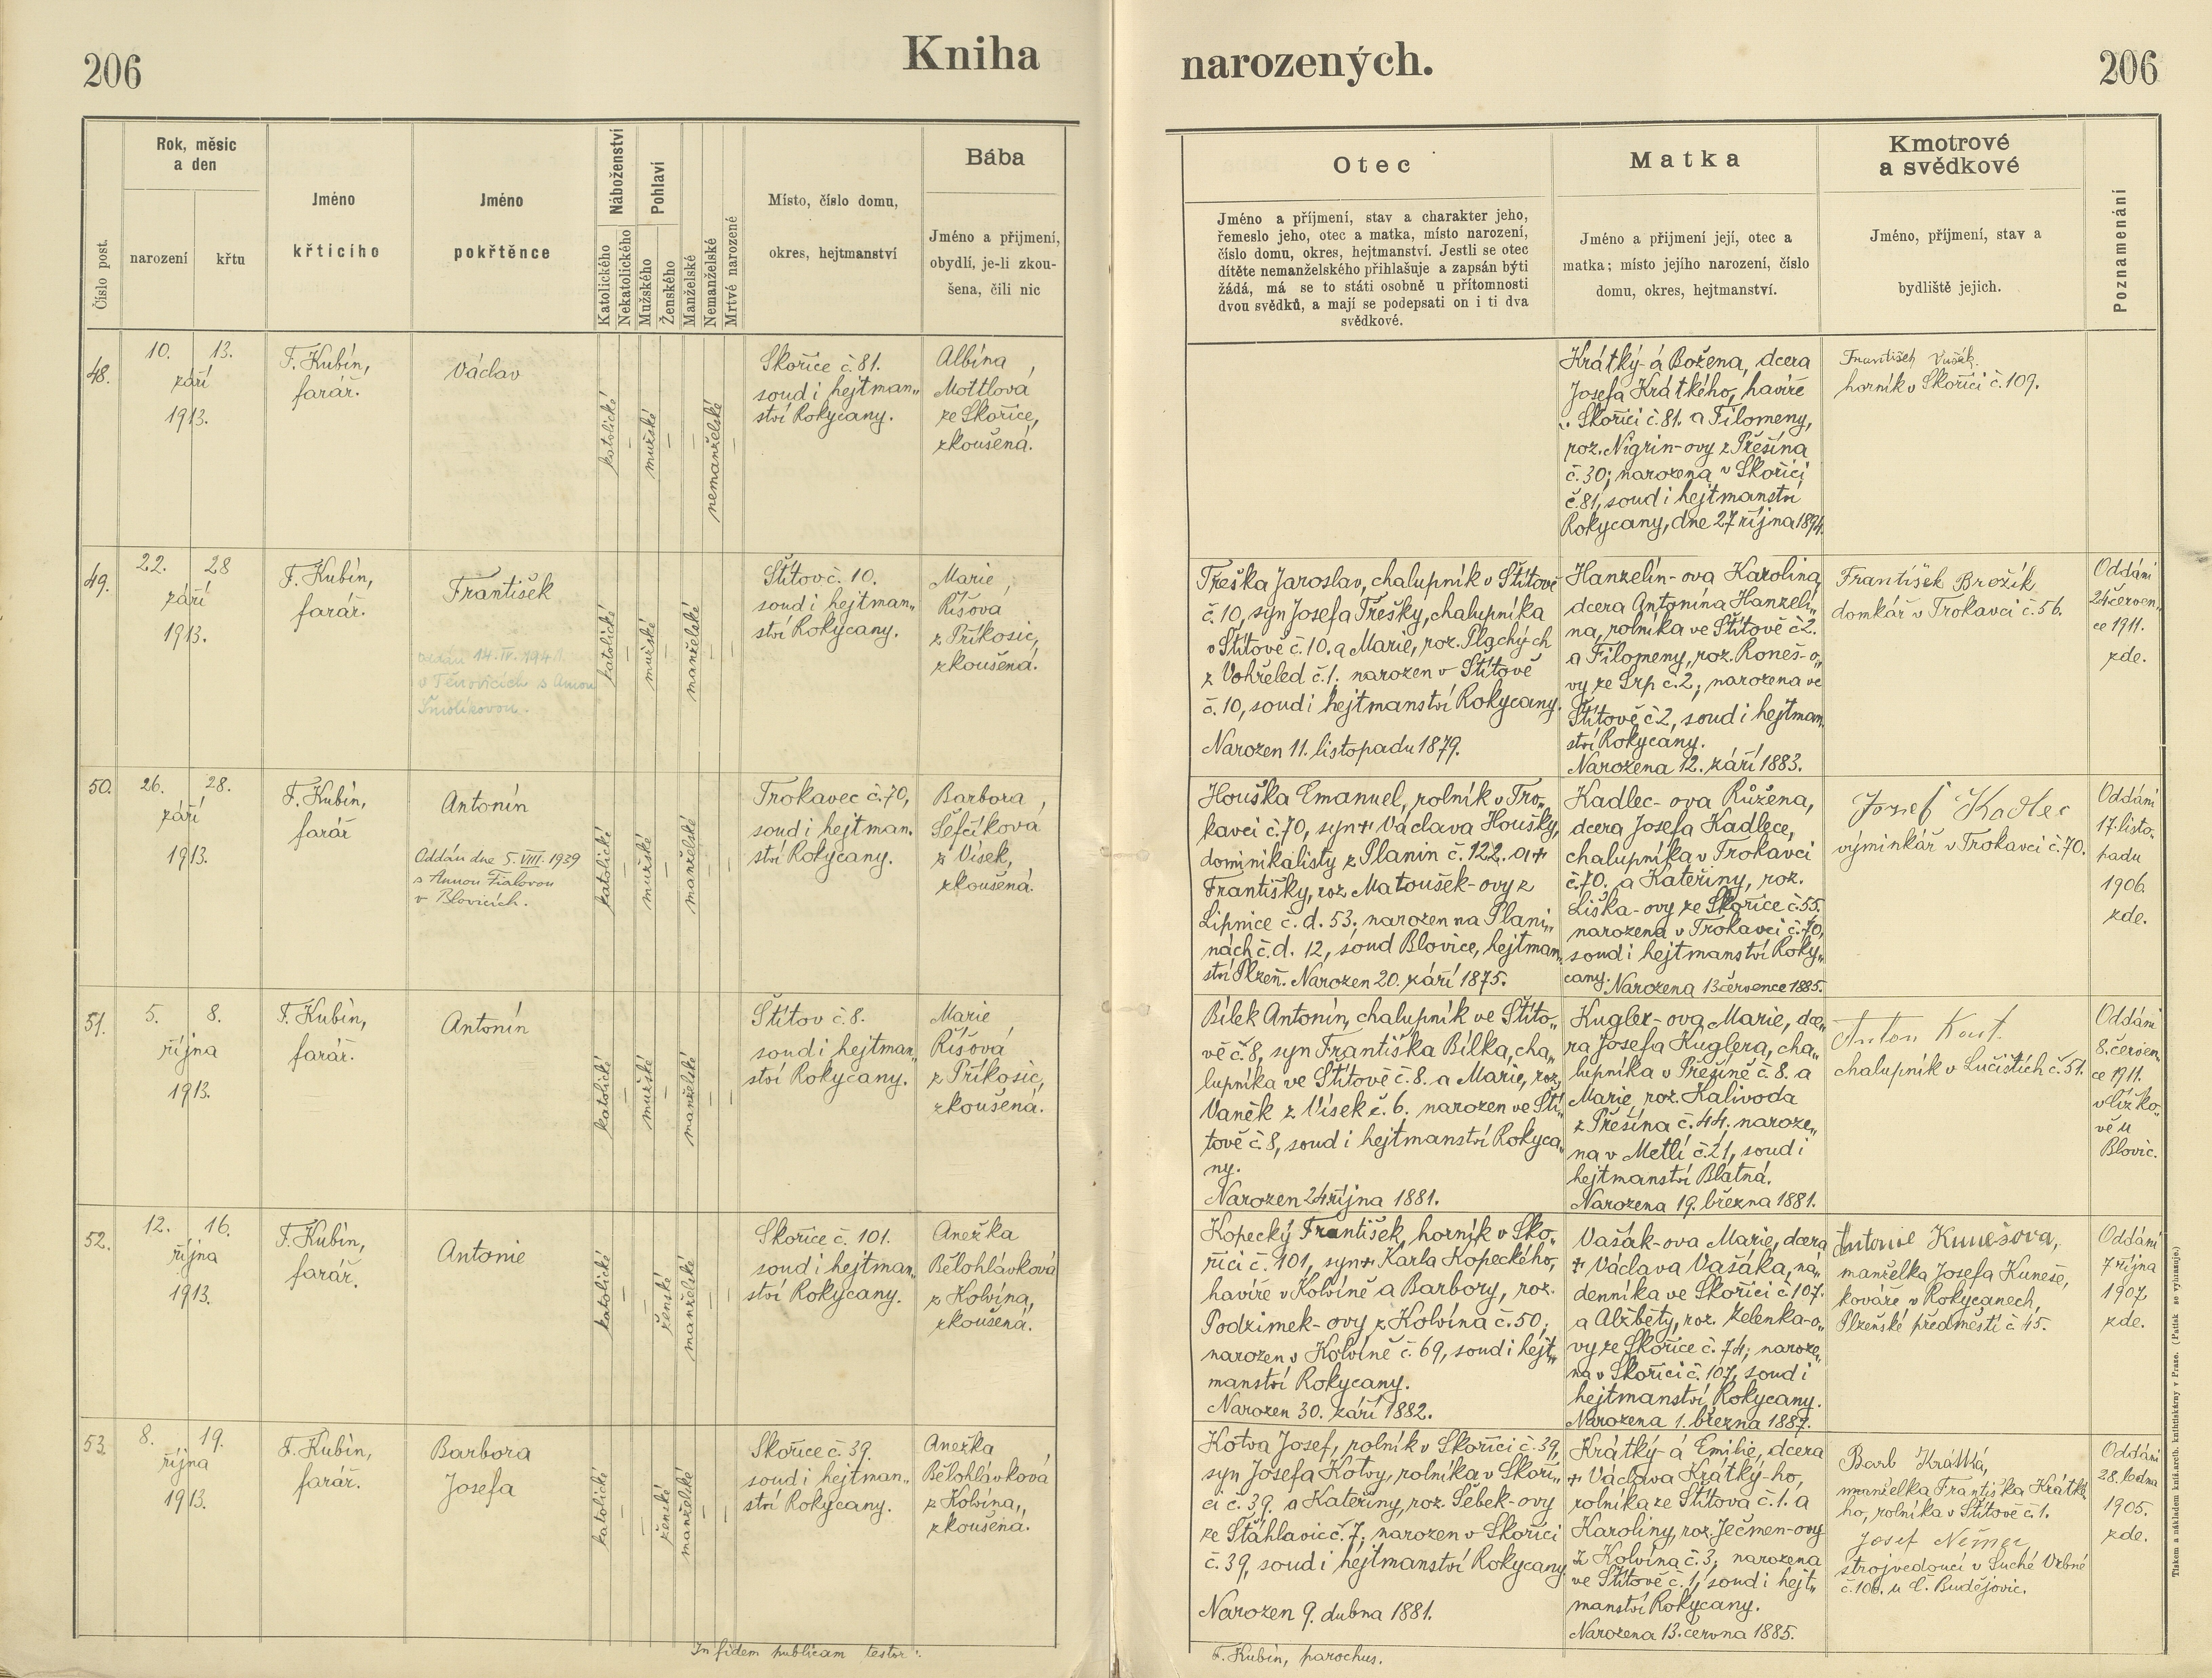 206
Kniha
narozených.
206
Číslo post.
Rok, měsíc
a den
narození
křtu
Jméno
křtícího
Jméno
pokřtěnce
Náboženství
Katolického
Nekatolického
Pohlaví
Mužského
Ženského
Manželské
Nemanželské
Mrtvé narozené
Místo, číslo domu,
okres, hejtmanství
Bába
Jméno a příjmení,
obydlí, je-li zkou-
šena, čili nic
Otec
Jméno a příjmení, stav a charakter jeho,
řemeslo jeho, otec a matka, místo narození,
číslo domu, okres, hejtmanství. Jestli se otec
dítěte nemanželského přihlašuje a zapsán býti
žádá, má se to státi osobně u přítomnosti
dvou svědků, a mají se podepsati on i ti dva
svědkové.
Matka
Jméno a přijmení její, otec a
matka; místo jejího narození, číslo
domu, okres, hejtmanství.
Kmotrové
a svědkové
Jméno, příjmení, stav a
bydliště jejich.
Poznamenání
48.
10. 13.
září
1913.
F. Kubín,
farář.
Václav
katolické
–
mužské
–
–
nemanželské
–
Skořice č. 81.
soud i hejtman„
ství Rokycany.
Albína
Mottlová
ze Skořice,
zkoušená.
Krátký-á Božena, dcera
Josefa Krátkého, havíře
v Skořici č. 81. a Filomeny,
roz. Nigrin-ovy z Přešína
č. 30; narozena v Skořici
č. 81, soud i hejtmanství
Rokycany, dne 27 října 1894.
František Vušák,
horník v Skořici č. 109.
49.
22. 28
září
1913.
F. Kubín,
farář.
František
oddán 14. IV. 1941.
v Těnovicích s Annou
katolické
–
mužské
–
manželské
–
–
Štítov č. 10.
soud i hejtman„
ství Rokycany.
Marie
Ríšová
z Příkosic,
zkoušená.
Třeška Jaroslav, chalupník v Štítově
č. 10, syn Josefa Třešky, chalupníka
v Štítově č. 10. a Marie, roz. Plachých
z Vohřeled č. 1. narozen v Štítově
č. 10, soud i hejtmanství Rokycany.
Narozen 11. listopadu 1879.
Hanzelín-ova Karolina,
dcera Antonína Hanzelí„
na, rolníka ve Štítově č 2.
a Filomeny, roz. Roneš-o„
vy ze Srp č. 2; narozena ve
Štítově č 2, soud i hejtman„
ství Rokycany.
Narozena 12. září 1883.
František Brožík
domkář v Trokavci č. 56.
Oddáni
24 červen„
ce 1911.
zde.
50.
26. 28.
září
1913.
F. Kubín,
farář
Antonín
Oddán dne 5. VIII. 1939
s Annou Fialovou
v Blovicích.
katolické
–
mužské
–
manželské
–
–
Trokavec č. 70,
soud i hejtman„
ství Rokycany.
Barbora
Šefčíková
z Vísek,
zkoušená.
Houška Emanuel, rolník v Tro„
kavci č. 70, syn + Václava Houšky,
dominikalisty z Planin č. 122. a +
Františky, roz Matoušek-ovy z
Lipnice č. d. 53. narozen na Plani„
nách č. d. 12, soud Blovice, hejtman„
ství Plzeň. Narozen 20. září 1875.
Kadlec-ova Růžena,
dcera Josefa Kadlece,
chalupníka v Trokavci
č. 70. a Kateřiny, roz.
Liška-ovy ze Skořice č. 55.
narozena v Trokavci č. 70,
soud i hejtmanství Roky„
cany. Narozena 13 července 1885.
Josef Kadlec
výminkář v Trokavci č. 70.
Oddáni
17. listo„
padu
1906.
zde.
51.
5. 8.
října
1913.
F. Kubín,
farář.
Antonín
katolické
–
mužské
–
manželské
–
–
Štítov č. 8.
soud i hejtman„
ství Rokycany.
Marie
Ríšová
z Příkosic,
zkoušená.
Bílek Antonín, chalupník ve Štíto„
vě č. 8, syn Františka Bílka, cha„
lupníka ve Štítově č. 8. a Marie, roz.
Vaněk z Vísek č. 6. narozen ve Ští„
tově č. 8, soud i hejtmanství Rokyca„
ny.
Narozen 24 října 1881.
Kugler-ova Marie, dce„
ra Josefa Kuglera, cha„
lupníka v Přešíně č. 8. a
Marie, roz. Kalivoda
z Přešína č. 44. naroze„
na v Metlí č. 21, soud i
hejtmanství Blatná.
Narozena 19. března 1881.
Anton Kout
chalupník v Lučištích č. 51.
Oddáni
8. červen„
ce 1911.
v Žížko„
vě u
Blovic.
52.
12. 16.
října
1913.
F. Kubín,
farář.
Antonie
katolické
–
–
ženské
manželské
–
–
Skořice č. 101.
soud i hejtman„
ství Rokycany.
Anežka
Bělohlávková
z Kolvína,
zkoušená.
Kopecký František, horník v Sko„
řici č. 101, syn + Karla Kopeckého,
havíře v Kolvíně a Barbory, roz.
Podzimek-ovy z Kolvína č. 50;
narozen v Kolvíně č. 69, soud i hejt„
manství Rokycany.
Narozen 30. září 1882.
Vašák-ova Marie, dcera
+ Václava Vašáka, ná„
denníka ve Skořici č 107.
a Alžběty, roz. Zelenka-o„
vy ze Skořice č. 74; naroze„
na v Skořici č. 107, soud i
hejtmanství Rokycany.
Narozena 1. března 1887.
Antonie Kunešova,
manželka Josefa Kuneše,
kováře v Rokycanech,
Plzeňské předměstí č 45.
Oddáni
7 října
1907
zde.
53.
8. 19.
října
1913.
F. Kubín,
farář.
Barbora
Josefa
katolické
–
–
ženské
manželské
–
–
Skořice č. 39.
soud i hejtman„
ství Rokycany.
Anežka
Bělohlávková
z Kolvína,
zkoušená.
Kotva Josef, rolník v Skořici č. 39,
syn Josefa Kotvy, rolníka v Skoři„
ci č. 39. a Kateřiny, roz. Šebek-ovy
ze Šťáhlavic č. 7; narozen v Skořici
č. 39, soud i hejtmanství Rokycany
Narozen 9. dubna 1881.
Krátký-á Emilie, dcera
+ Václava Krátký-ho,
rolníka ze Štítova č. 1. a
Karoliny, roz. Ječmen-ovy
z Kolvína č. 3; narozena
ve Štítově č. 1, soud i hejt„
manství Rokycany.
Narozena 13. června 1885.
Barb Krátká,
manželka Františka Krátké
ho, rolníka v Štítově č. 1.
Josef Němec
strojvedoucí v Suché Vrbné
č. 106. u Č. Budějovic.
Oddáni
28. ledna
1905.
zde.
In fidem publicam testor:
F. Kubín, parochus.
Tiskem a nákladem kníž. arcib. knihtiskárny v Praze. (Patisk se vyhrazuje.)